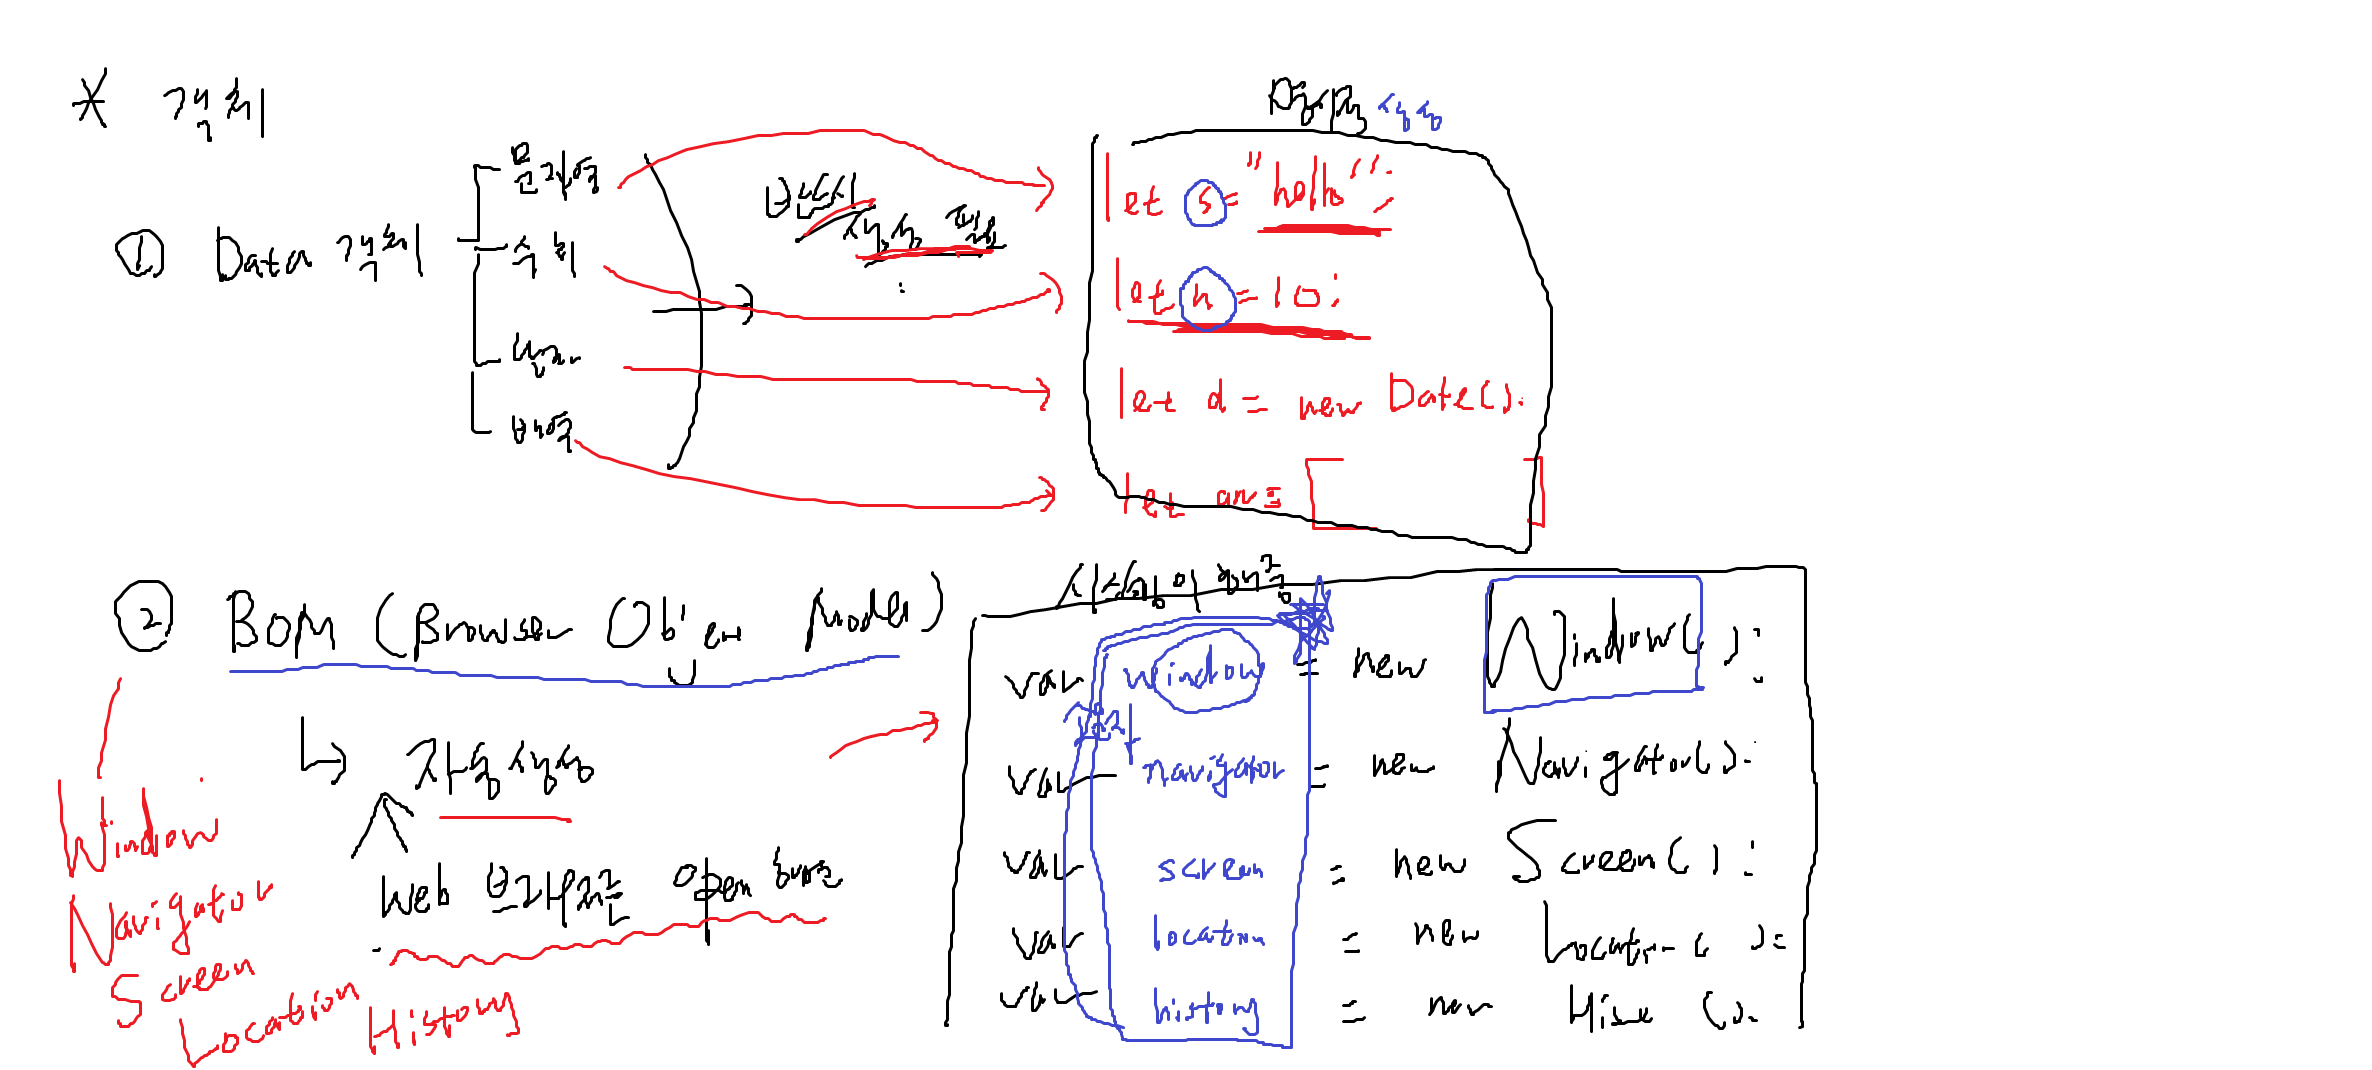 * 객체
① Data 객체
문자열
수치
날짜
배열
반드시
생성 필요
생성
let s = "hello";
let n = 10;
let d = new Date();
let arr = [ ]
② BOM (Browser Object Model)
↳ 자동생성
Web 브라우저를 open
Window
Navigator
Screen
Location
History
var window = new Window();
var navigator = new Navigator();
var screen = new Screen();
var location = new Location();
var history = new